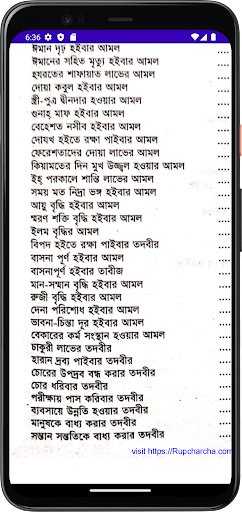 6:36
ঈমান দৃঢ় হইবার আমল
ঈমানের সহিত মৃত্যু হইবার আমল
হযরতের শাফায়াত লাভের আমল
দোয়া কবুল হইবার আমল
স্ত্রী-পুত্র দ্বীনদার হওয়ার আমল
গুনাহ্ মাফ হইবার আমল
বেহেশত নসীব হইবার আমল
দোযখ হইতে রক্ষা পাইবার আমল
ফেরেশতাদের দোয়া লাভের আমল
কিয়ামতের দিন মুখ উজ্জ্বল হওয়ার আমল
ইহ্ পরকালে শান্তি লাভের আমল
সময় মত নিদ্রা ভঙ্গ হইবার আমল
আয়ু বৃদ্ধি হইবার আমল
স্মরণ শক্তি বৃদ্ধি হইবার আমল
ইলম বৃদ্ধির আমল
বিপদ হইতে রক্ষা পাইবার তদবীর
বাসনা পূর্ণ হইবার আমল
বাসনাপূর্ণ হইবার তাবীজ
মান-সম্মান বৃদ্ধি হইবার আমল
রুজী বৃদ্ধি হইবার আমল
দেনা পরিশোধ হইবার আমল
ভাবনা-চিন্তা দূর হইবার আমল
বেকারের কর্ম সংস্থান হওয়ার আমল
চাকুরী লাভের তদবীর
হারান দ্রব্য পাইবার তদবীর
চোরের উপদ্রব বন্ধ করার তদবীর
চোর ধরিবার তদবীর
পরীক্ষায় পাস করিবার তদবীর
ব্যবসায়ে উন্নতি হওয়ার তদবীর
মানুষকে বাধ্য করার তদবীর
সন্তান সন্ততিকে বাধ্য করার তদবীর
visit https://Rupcharcha.com